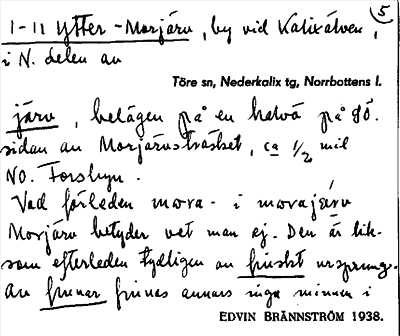 5
1-11 Ytter-Morjärv, by vid Kalixälven,
i N. delen av
Töre sn, Nederkalix tg, Norrbottens l.
järv, belägen på en halvö på SÖ.
sidan av Morjärvsträsket, ca 1/2 mil
NO. Forsbyn.
Vad förleden mora- i morajärv
Morjärv betyder vet man ej. Den är lik-
som efterleden tydligen av finskt ursprung.
Av finnar finnas annars inga minnen i
EDVIN BRÄNNSTRÖM 1938.